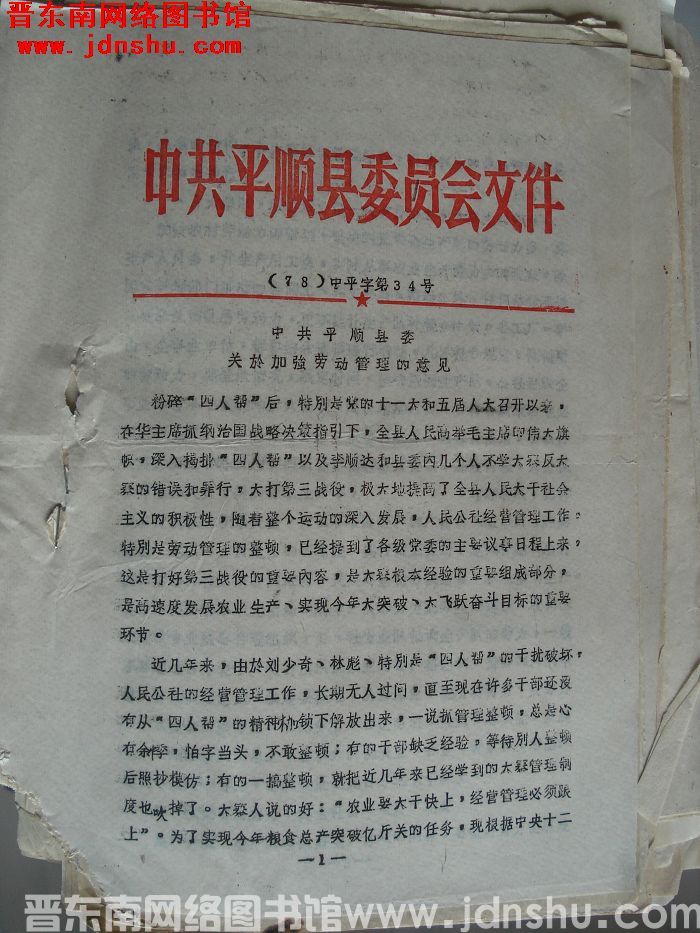 晋东南网络图书馆
www.jdnshu.com
中共平顺县委员会文件
(78)中平字第34号
中共平顺县委
关於加強劳动管理的意见
粉碎“四人帮”后，特别是党的十一大和五届人大召开以来，
在华主席抓纲治国战略决策指引下，全县人民高举毛主席的伟大旗
帜，深入揭批“四人帮”以及李顺达和县委内几个人不学大寨反大
寨的错误和罪行，大打第三战役，极大地提高了全县人民大干社会
主义的积极性，随着整个运动的深入发展，人民公社经营管理工作，
特别是劳动管理的整顿，已经提到了各级党委的主要议事日程上来，
这是打好第三战役的重要內容，是大寨根本经验的重要组成部分，
是高速度发展农业生产、实现今年大突破、大飞跃奋斗目标的重要
环节。
近几年来，由於刘少奇、林彪、特别是“四人帮”的干扰破坏，
人民公社的经营管理工作，长期无人过问，直至现在许多干部还没
有从“四人帮”的精神枷锁下解放出来，一说抓管理整顿，总是心
有余悸，怕字当头，不敢整顿；有的干部缺乏经验，等待别人整顿
后照抄模仿；有的一搞整顿，就把近几年来已经学到的大寨管理制
度也吹掉了。大寨人说的好：“农业要大干快上，经营管理必须跟
上”。为了实现今年粮食总产突破亿斤关的任务，现根据中央十二
—1—
晋东南网络图书馆www.jdnshu.com